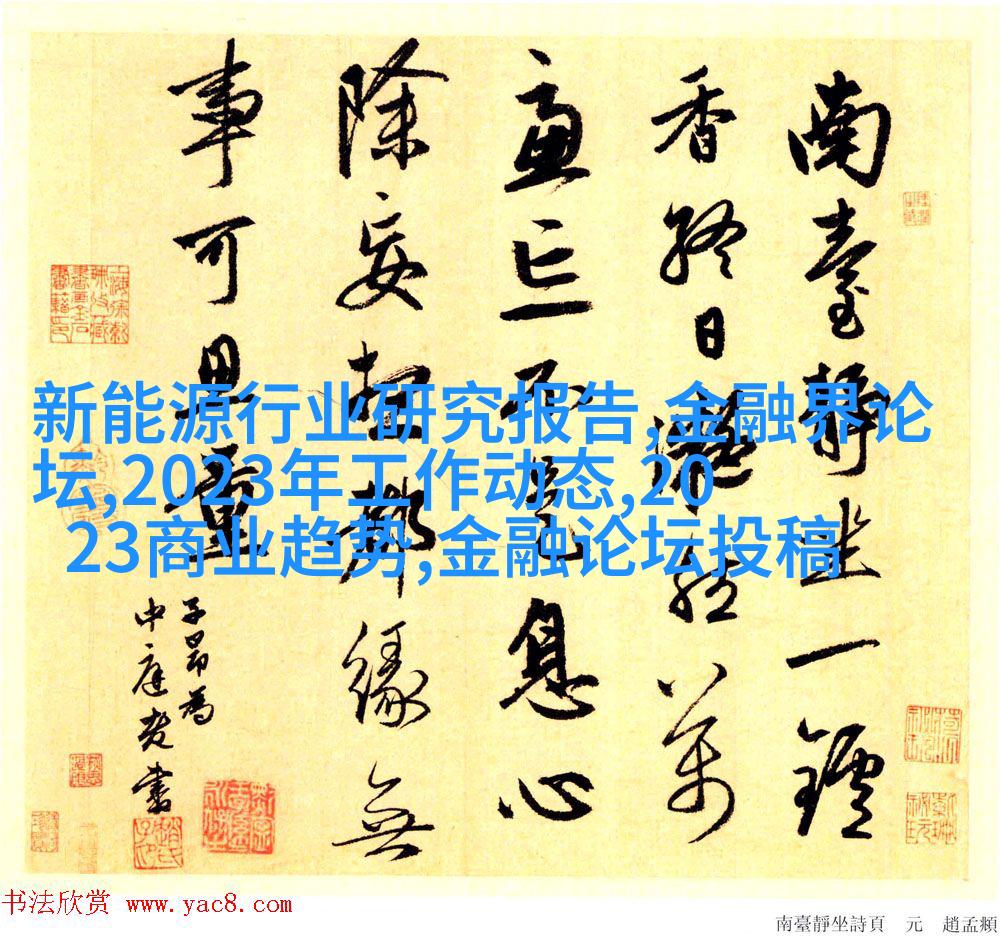 南臺靜坐一鑪
香終日凝然萬
慮亡不是息心
除妄想都緣無
事可思量
子昂為
中庭老書
新能源行业研究报告,金融界论
坛,2023年工作动态,20
23商业趋势,金融论坛投稿
书法欣赏 www.yac8.com
南臺靜坐詩頁 元 趙孟頫